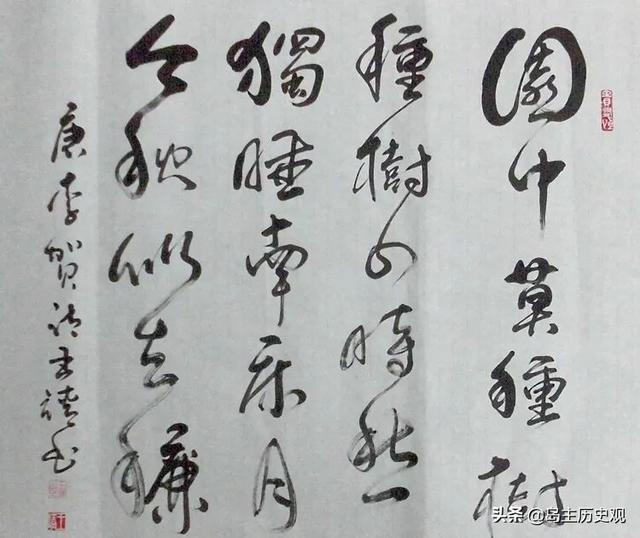 園中莫種樹
種樹四時愁
獨睡南床月
今秋似去秋
唐李賀詩王书
头条 @岛主历史观